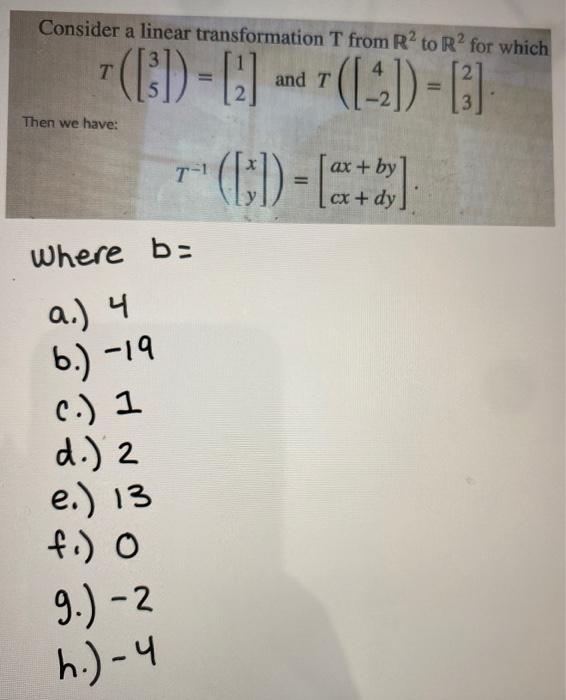 Consider a linear transformation T from ℝ² to ℝ² for which
T([3 5]) = [1 2] and T([4 -2]) = [2 3].
Then we have:
T⁻¹([x y]) = [ax + by cx + dy].
where b=
a.) 4
b.) -19
c.) 1
d.) 2
e.) 13
f.) 0
g.) -2
h.) -4